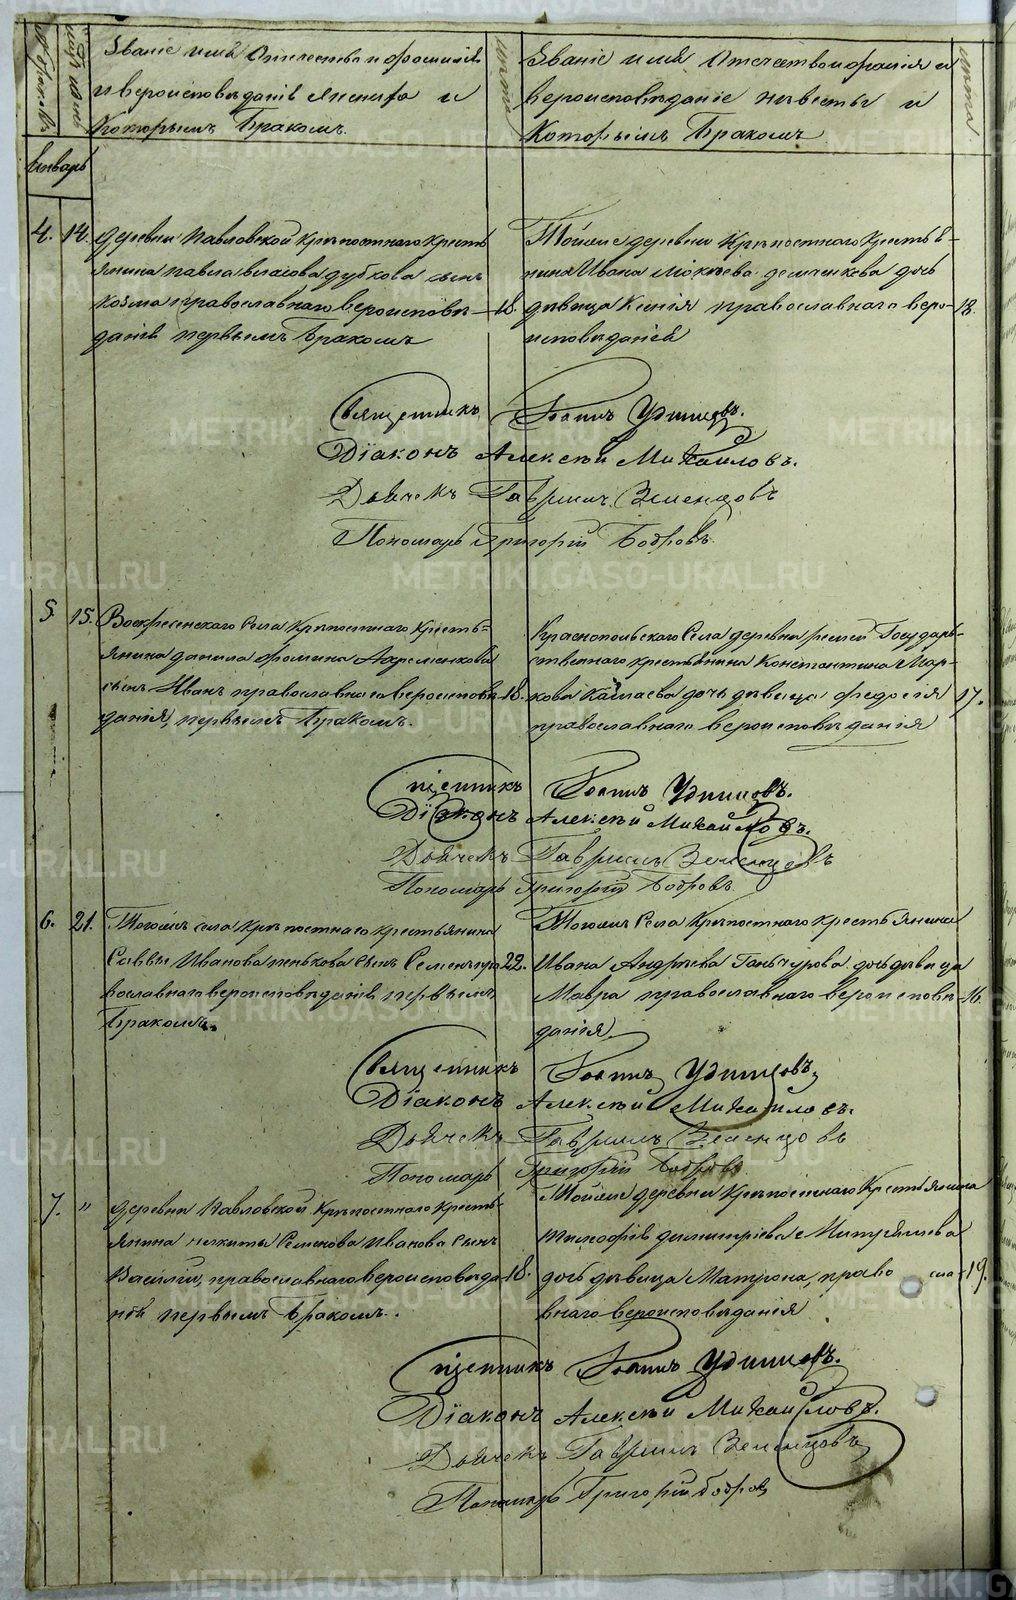 Званіе имя Отечество и фамилія
и вероисповѣданіе жениха и
Которымъ Бракомъ.
лета
Званіе имя Отечество и фамилія и
вероисповѣданіе невесты и
Которымъ Бракомъ
лета
Январь
4. 14. деревни Павловской Крѣпостнаго Кресть
янина Павла Власова Дубкова сынъ
Козма православнаго вероисповѣ- 18.
даніе первымъ Бракомъ
Тойже деревни Крѣпостнаго Кресть
янина Ивана Мокѣева Демченкова дочь
дѣвица Ксенія православнаго веро- 18.
исповѣданія
Священникъ Іоаннъ Удинцовъ.
Діаконъ Алексѣй Михайловъ.
Дьячекъ Гавриилъ Земенцовъ
Пономарь Григорій Бобровъ
5. 15. Воскресенскаго Села Крѣпостнаго Кресть-
янина Данила Фомина Ахременкова
сынъ Иванъ православнаго вероисповѣ 18.
данія, первымъ Бракомъ.
Краснопольскаго Села деревни Государ-
ственнаго крестьянина Константина Мар-
кова дочь дѣвица Федосія 17.
православнаго вероисповѣданія
Священникъ Іоаннъ Удинцовъ.
Діаконъ Алексѣй Михайловъ.
Дьячекъ Гавриилъ Земенцовъ
Пономарь Григорій Бобровъ
6. 21. Тогожъ села крѣпостнаго крестьянина
Саввы Иванова Пенькова сынъ Семенъ пра 22.
вославнаго вероисповѣданія первымъ
Бракомъ.
Тогожъ Села Крѣпостнаго крестьянина
Ивана Андреева Ганчурова дочь дѣвица
Мавра православнаго вероисповѣ- 16.
данія
Священникъ Іоаннъ Удинцовъ
Діаконъ Алексѣй Михайловъ.
Дьячекъ Гавриилъ Земенцовъ
Пономарь Григорій Бобровъ
7. " деревни Павловской Крѣпостнаго Кресть-
янина Никиты Семенова Иванова сынъ
Василій, православнаго вероисповѣда 18.
нія первымъ Бракомъ.
Тойже деревни Крѣпостнаго Крестьянина
Тимофѣя Димитріева
дочь дѣвица Матрона, право сла 19.
внаго вероисповѣданія
Священникъ Іоаннъ Удинцовъ.
Діаконъ Алексѣй Михайловъ.
Дьячекъ Гавриилъ Земенцовъ
Пономарь Григорій Бобровъ
METRIKI.GASO-URAL.RU